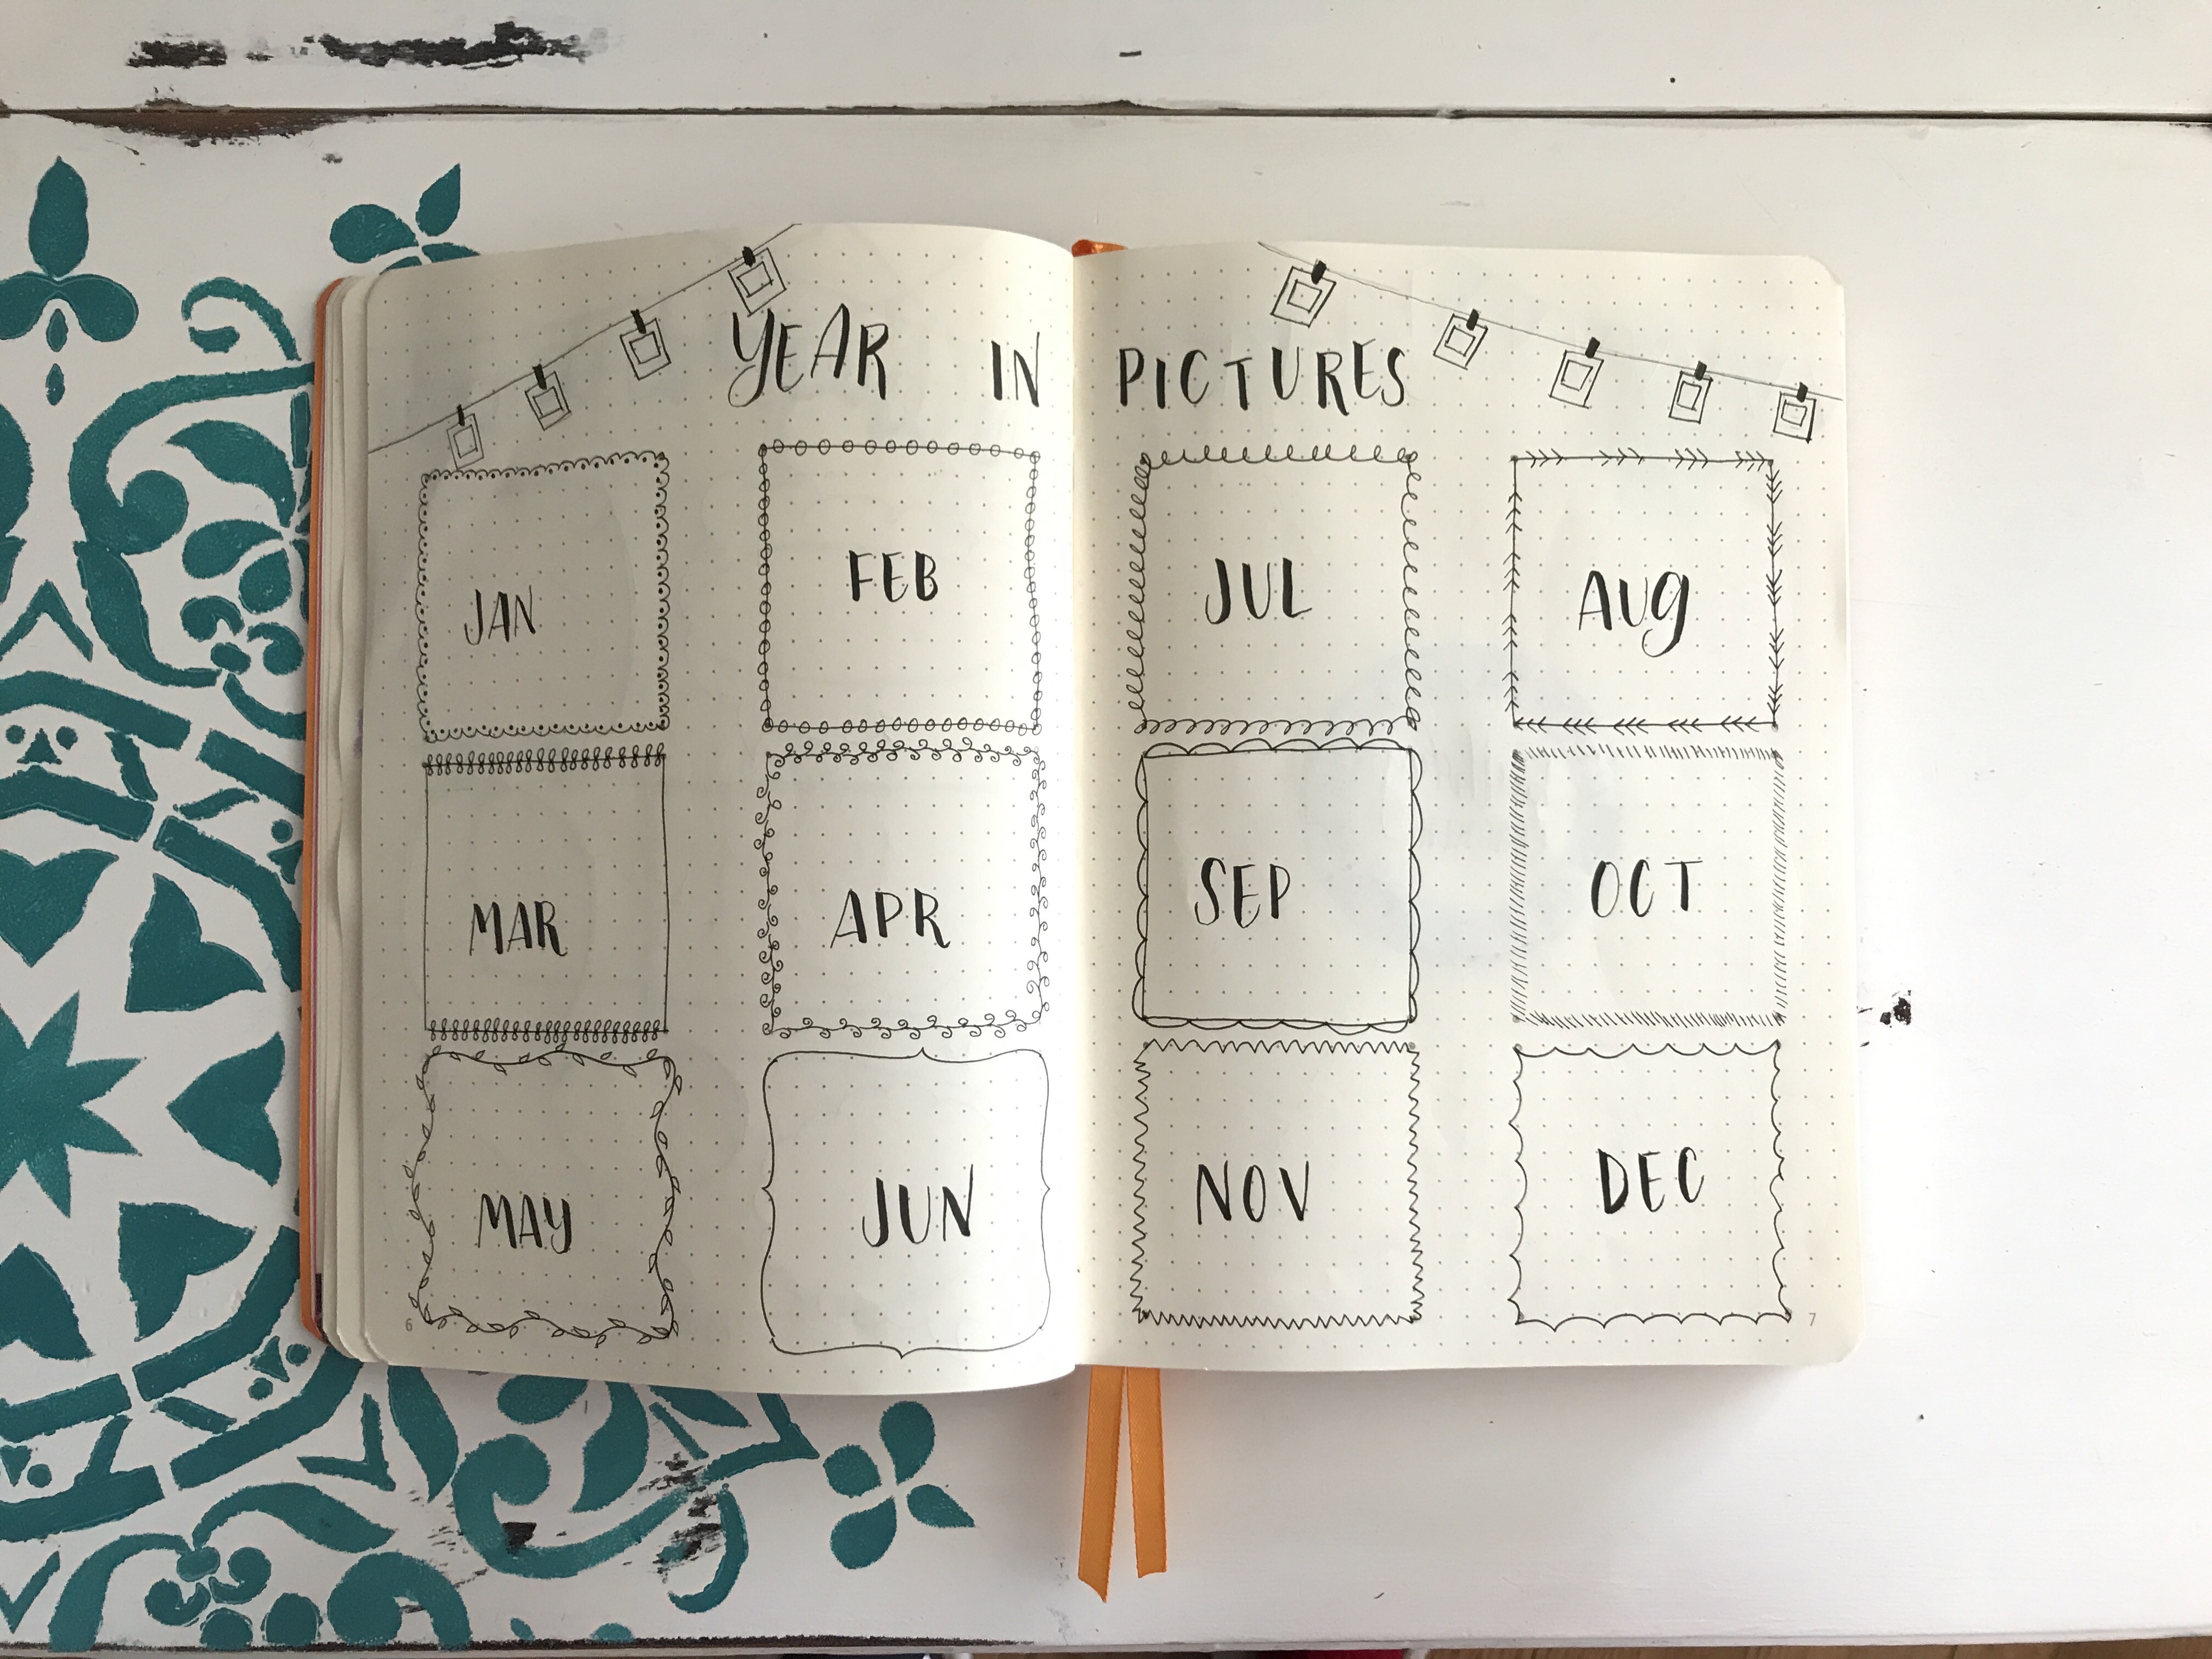 YEAR IN PICTURES
JAN FEB
MAR APR
MAY JUN
6
JUL AUG
SEP OCT
NOV DEC
7